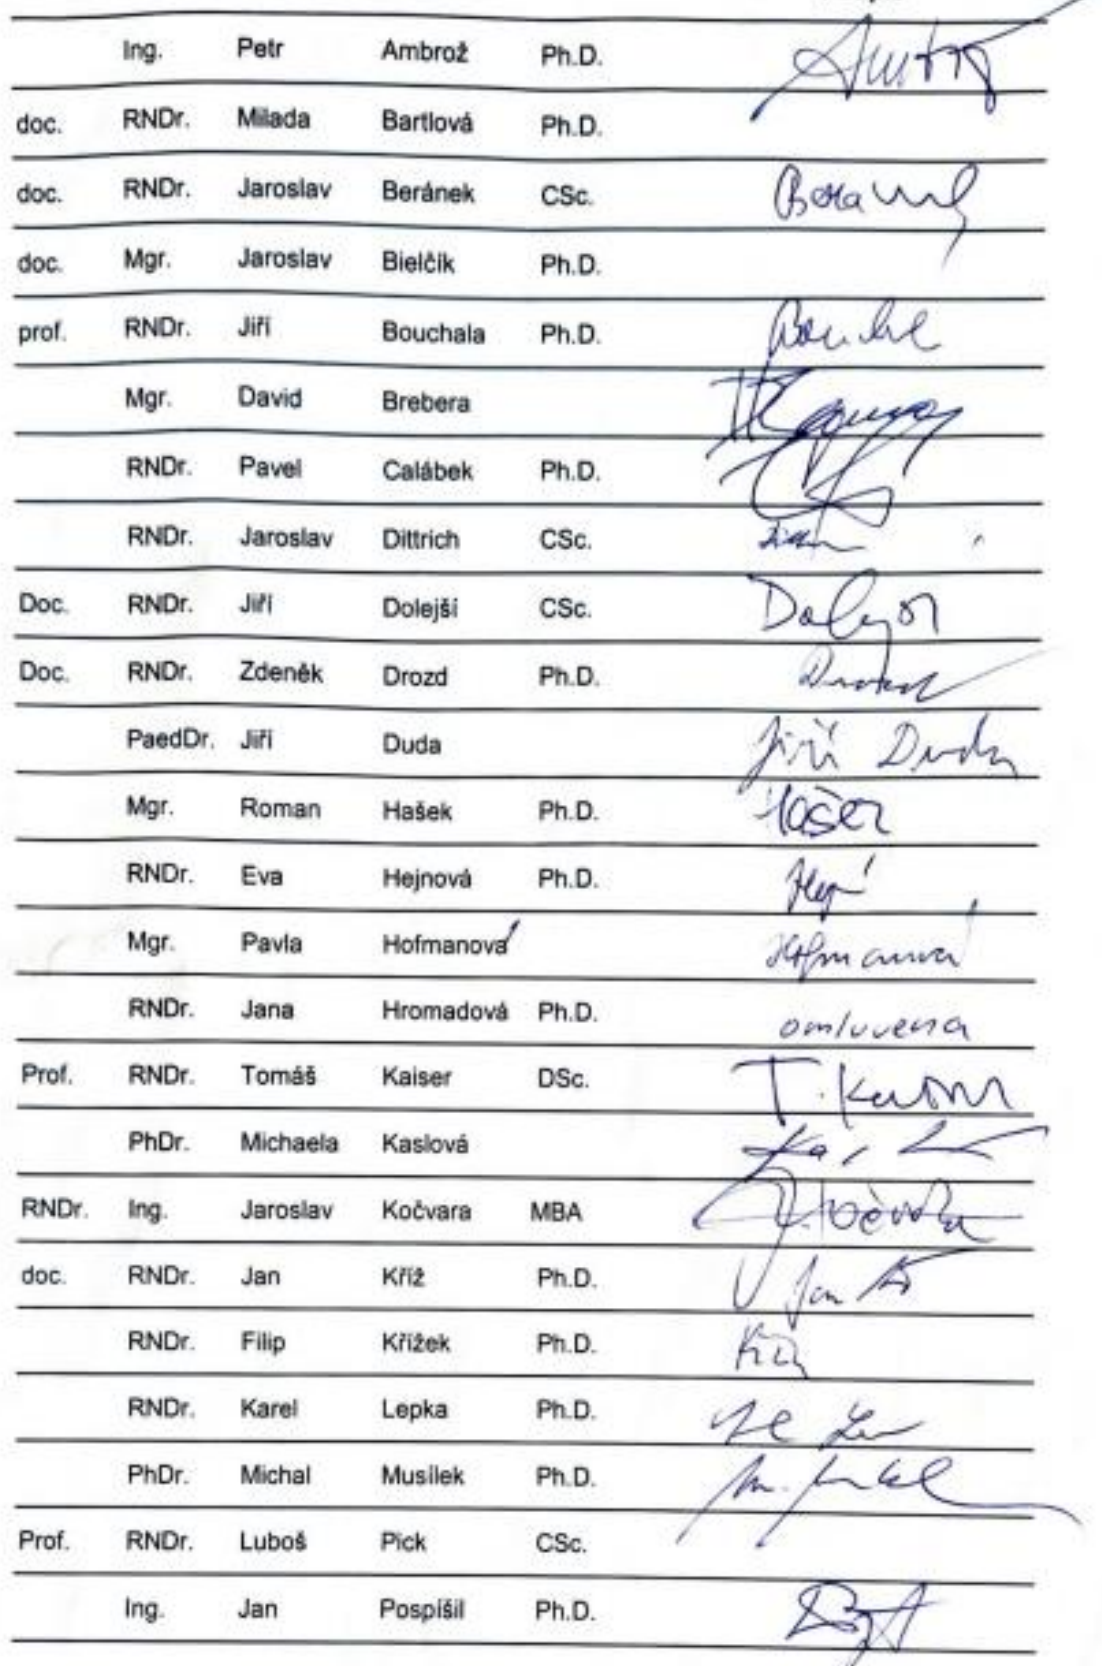 Ing. Petr Ambrož Ph.D.
doc. RNDr. Milada Bartlová Ph.D.
doc. RNDr. Jaroslav Beránek CSc.
doc. Mgr. Jaroslav Bielčik Ph.D.
prof. RNDr. Jiří Bouchala Ph.D.
Mgr. David Brebera
RNDr. Pavel Calábek Ph.D.
RNDr. Jaroslav Dittrich CSc.
Doc. RNDr. Jiří Dolejší CSc.
Doc. RNDr. Zdeněk Drozd Ph.D.
PaedDr. Jiří Duda Jiří Duda
Mgr. Roman Hašek Ph.D. Hašek
RNDr. Eva Hejnová Ph.D.
Mgr. Pavla Hofmanová Hofmanová
RNDr. Jana Hromadová Ph.D. omluvena
Prof. RNDr. Tomáš Kaiser DSc. T. Kaiser
PhDr. Michaela Kaslová
RNDr. Ing. Jaroslav Kočvara MBA J. Kočvara
doc. RNDr. Jan Kříž Ph.D. Jan
RNDr. Filip Křížek Ph.D.
RNDr. Karel Lepka Ph.D.
PhDr. Michal Musílek Ph.D.
Prof. RNDr. Luboš Pick CSc.
Ing. Jan Pospíšil Ph.D.